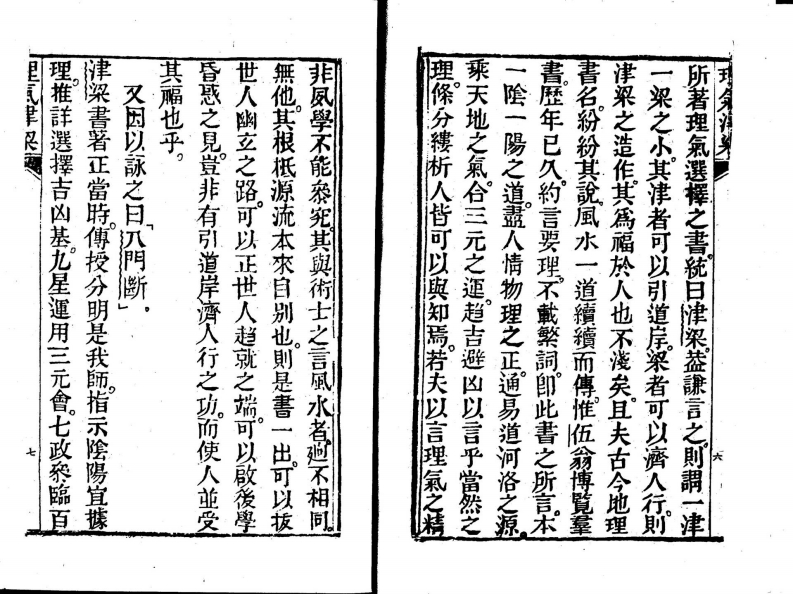 理氣津梁
所著理氣選擇之書統曰津梁蓋謙言之則謂一津
一梁之小其津者可以引道岸梁者可以濟人行則
津梁之造作其為福於人也不淺矣且夫古今地理
書名紛紛其說風水一道續續而傳惟伍翁博覽羣
書歷年已久約言要理不載繁詞卽此書之所言本
一陰一陽之道盡人情物理之正通易道河洛之源
乘天地之氣合三元之運趨吉避凶以言乎當然之
理條分縷析人皆可以與知焉若夫以言理氣之精
六
非夙學不能叅究其與術士之言風水者逈不相同
無他其根柢源流本來自別也則是書一出可以拔
世人幽玄之路可以正世人趨就之端可以啟後學
昏惑之見豈非有引道岸濟人行之功而使人並受
其福也乎
又因以詠之曰「八門斷」
津梁書著正當時傳授分明是我師指示陰陽宜據
理推詳選擇吉凶基九星運用三元會七政叅臨百
理氣津梁
七